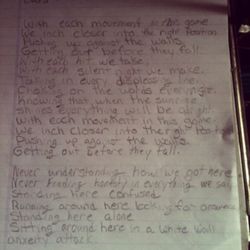 With each movement in this game.
We inch closer into the right Position
Pushing up against the walls.
Getting out before they fall.
With each hit we take,
With each silent night we make.
Taking in every depressing line.
Choking on the words everytime.
Knowing that when the sunrise
shines everything will be alright.
With each movement in this game.
We inch closer into the right Position
Pushing up against the walls.
Getting out before they fall.
Never understanding how we got here
Never finding honesty in everything we say
Standing here confused
Running around here looking for
Standing here alone
Sitting around here in a white wall
anxiety attack.